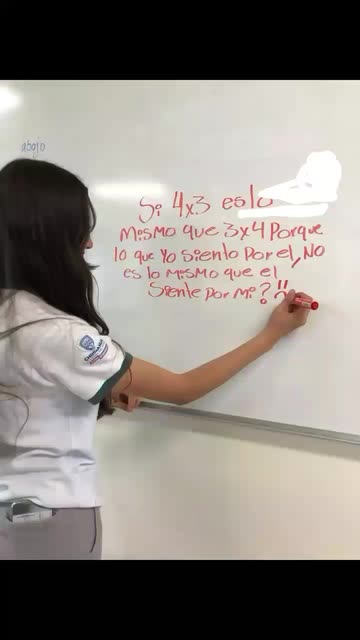 abajo
Si 4x3 es lo
mismo que 3x4 Porque
lo que Yo siento Por el, NO
es lo mismo que el
Siente por mi?